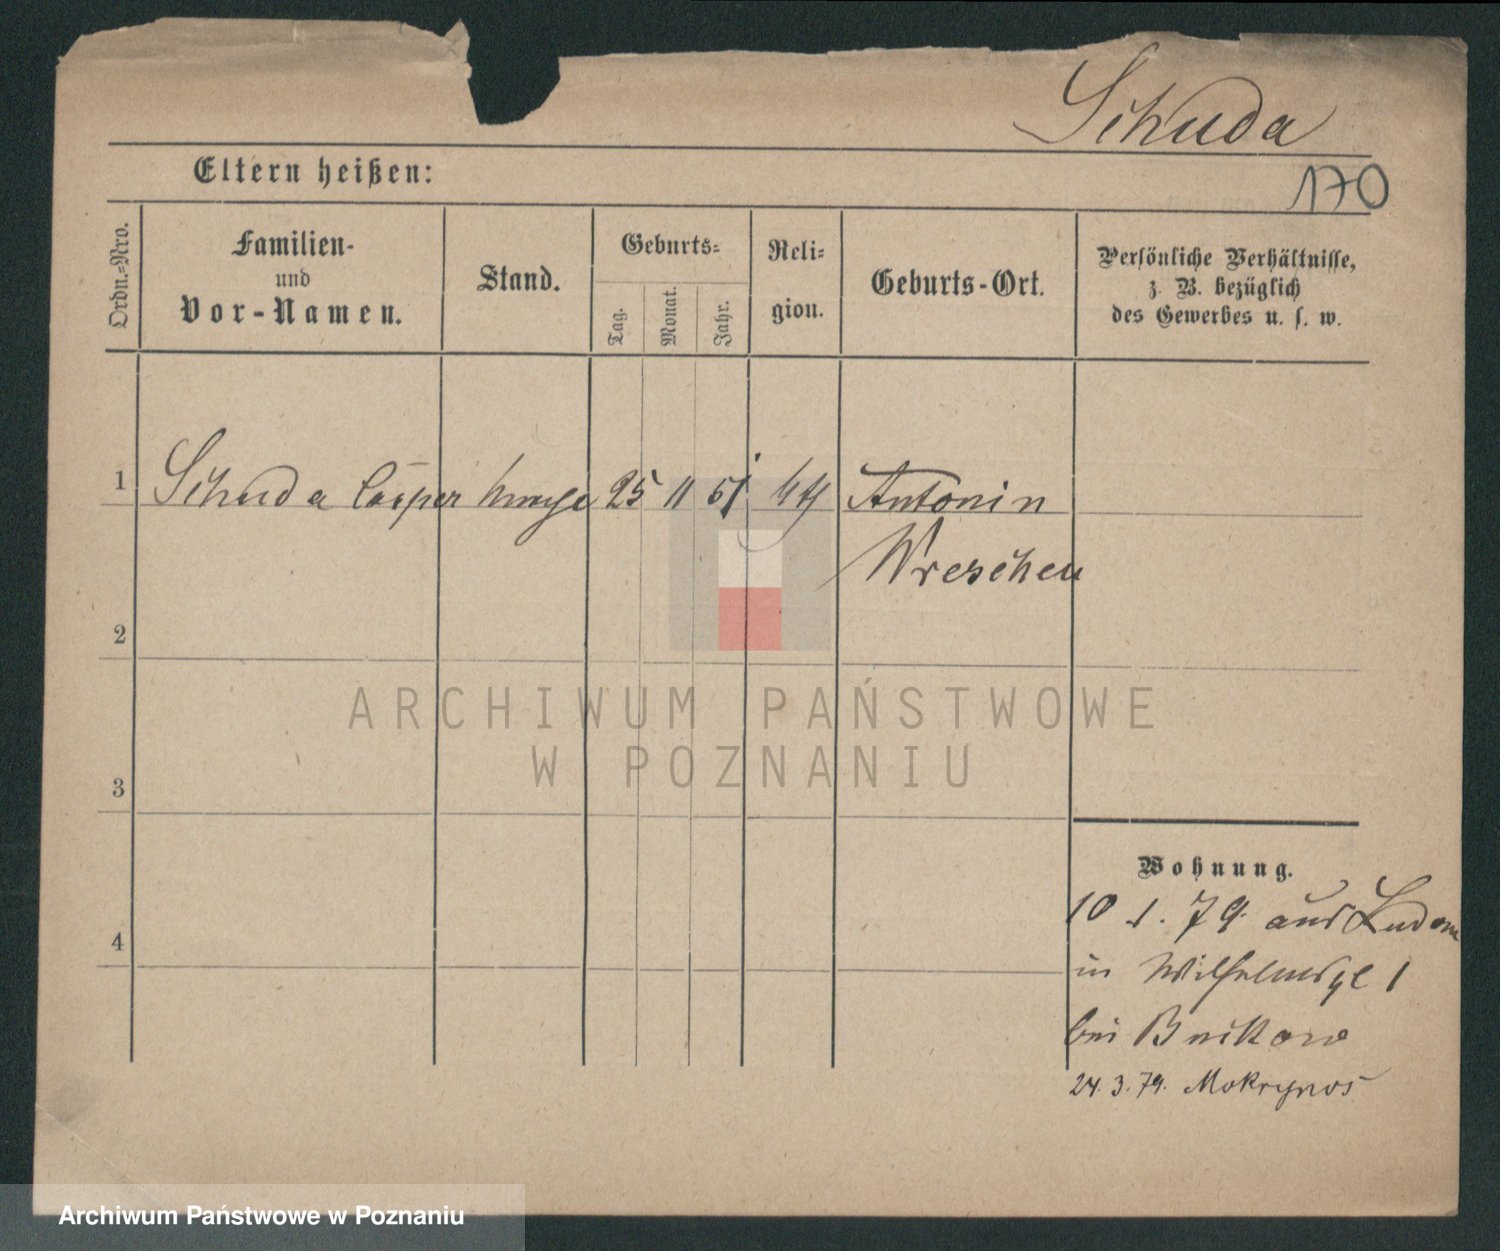 Schuda
170
Eltern heißen:
Ordn.=Nro.
Familien-
und
Vor-Namen.
Stand.
Geburts=
Tag.
Monat.
Jahr.
Reli=
gion.
Geburts-Ort.
Persönliche Verhältnisse,
z. B. bezüglich
des Gewerbes u. s. w.
1 Schuda Casper 25 11 51 Antonin
Wreschen
2
3
4
Wohnung.
10 1. 79. aus
in 1
bei
24. 3. 79. Mokrynos
ARCHIWUM PAŃSTWOWE
W POZNANIU
Archiwum Państwowe w Poznaniu